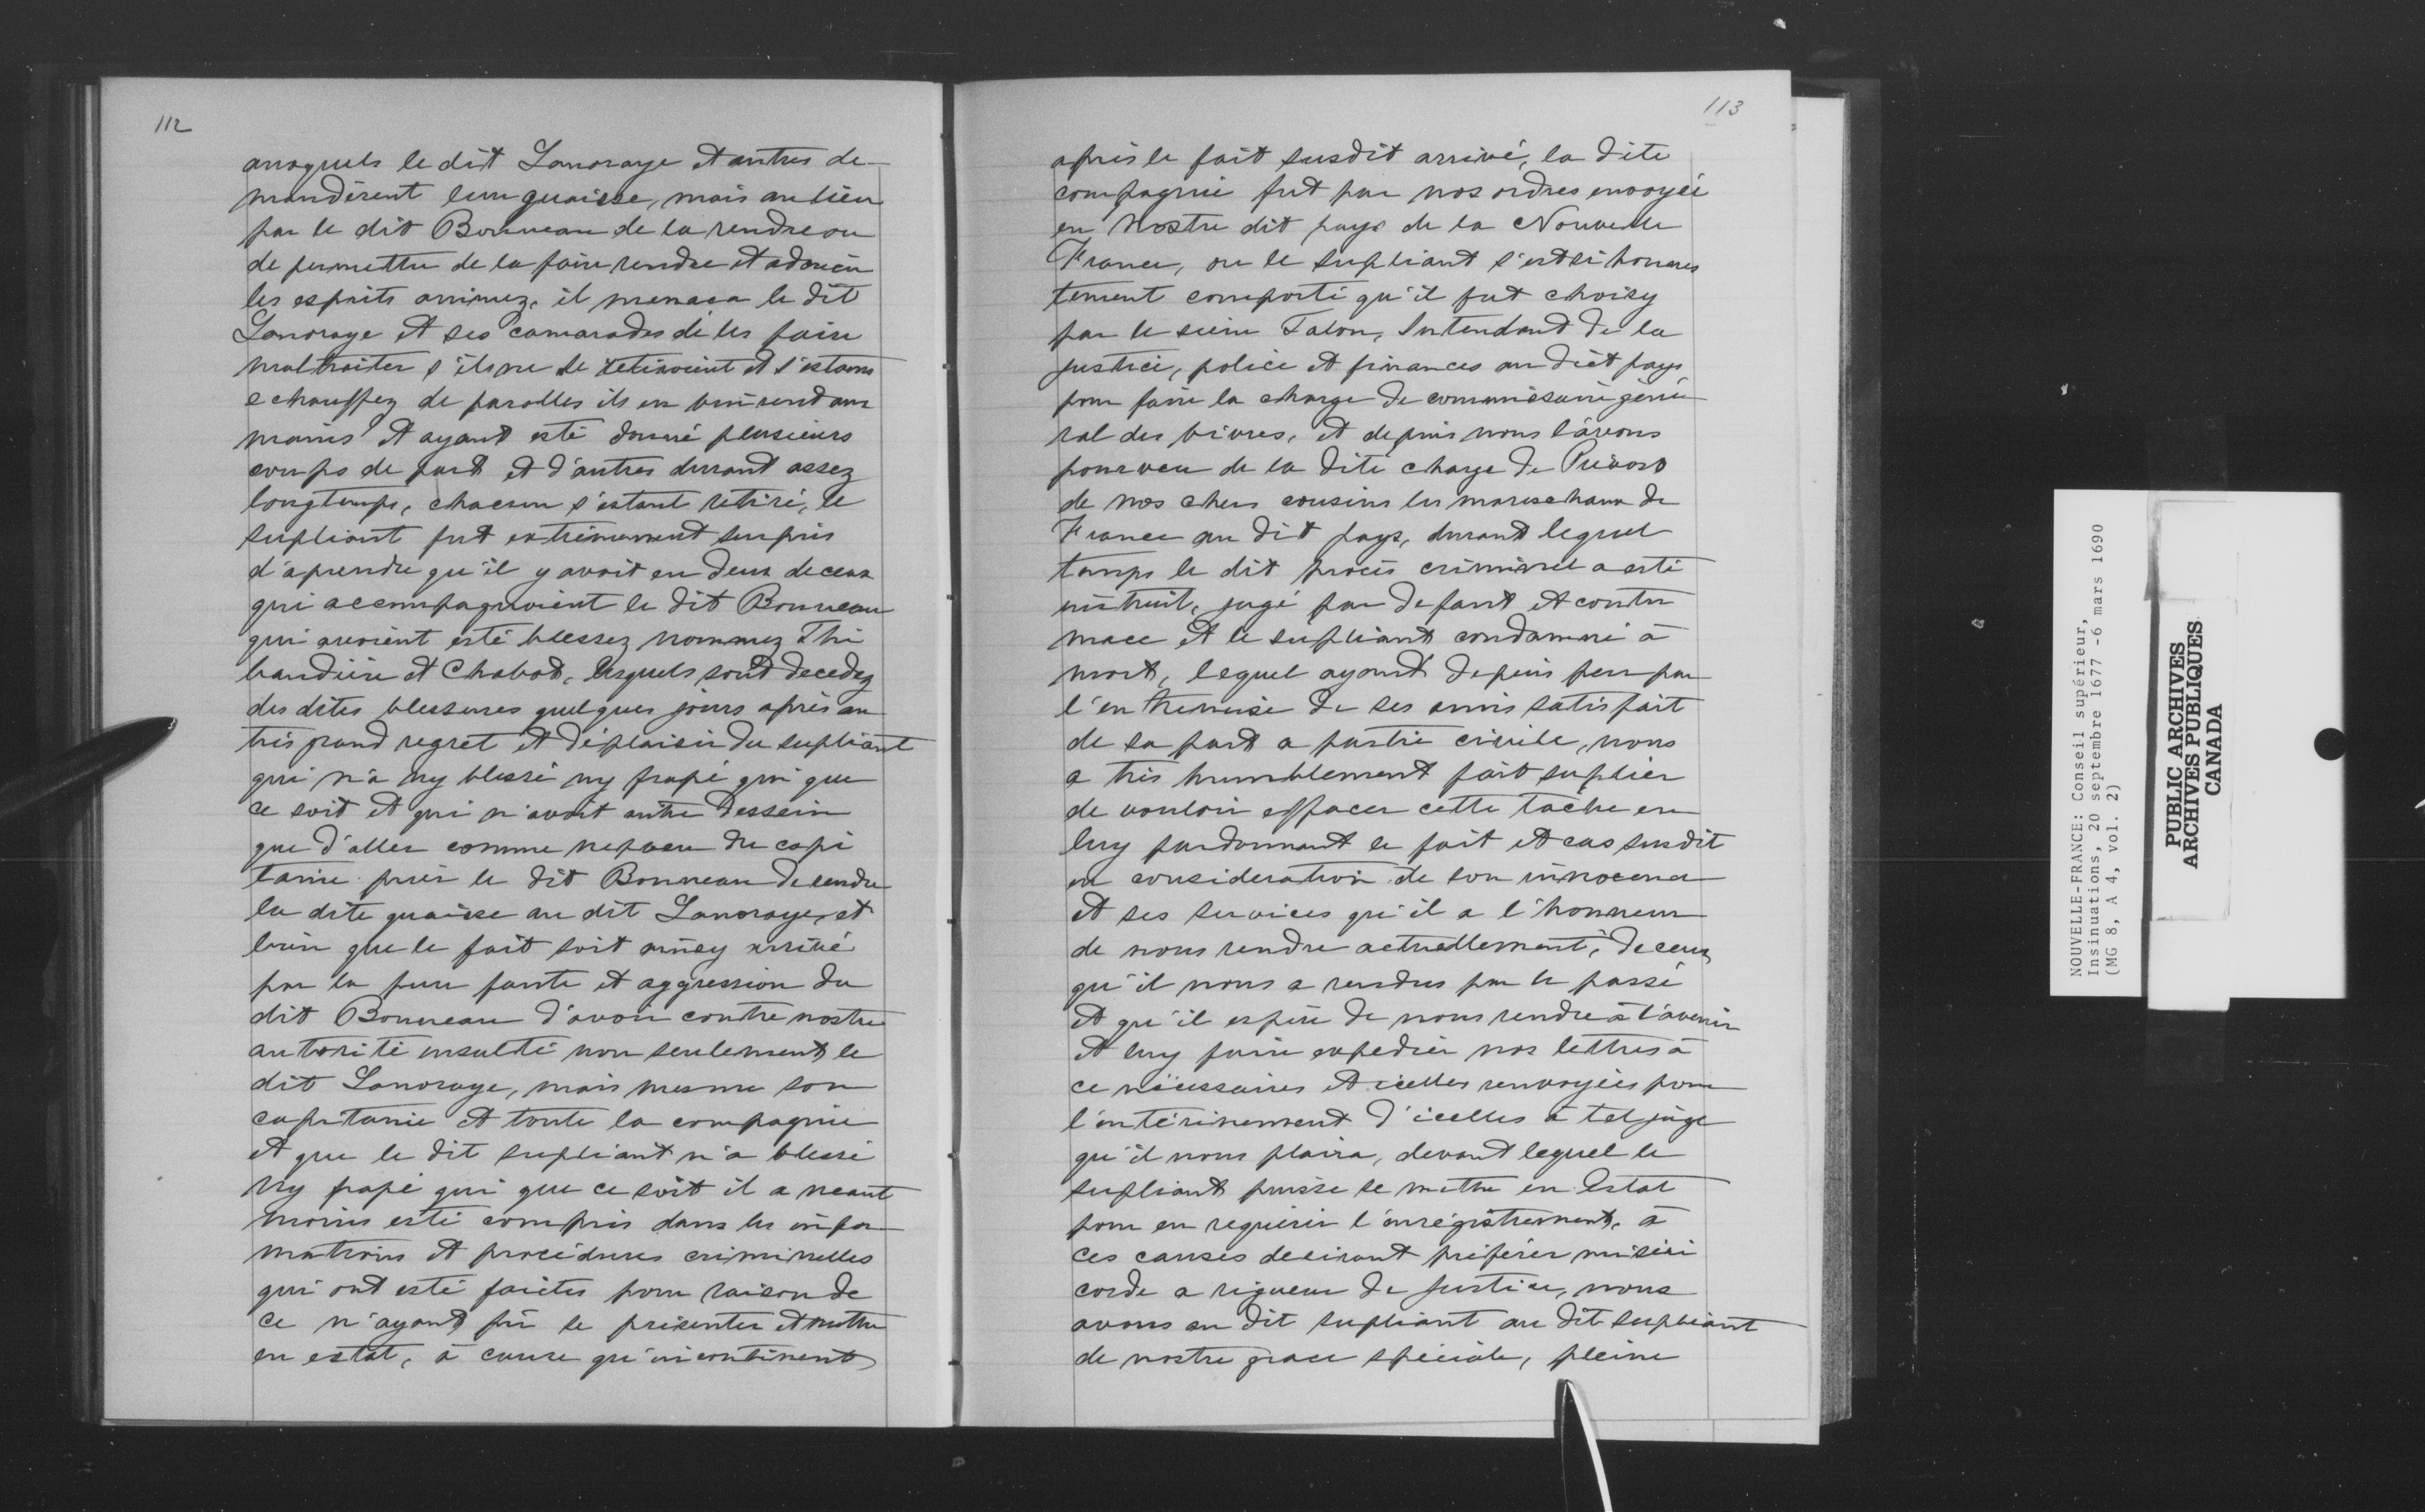 112
auxquels le dit Lanoraye et autres de-
mandèrent leur quaisse, mais au lieu
par le dit Bonneau de la rendre ou
de permettre de la faire rendre et adoucir
les esprits animez, il menaca le dit
Lanoraye et ses camarades de les faire
maltraiter s'ils ne se retiroient et s'estans
echauffez de parolles ils en vinrend aux
mains et ayant esté donné plusieurs
coups de part et d'autres durant assez
longtemps, chacun s'estant retiré, le
supliant fut extrêmement surpris
d'aprendre qu'il y avoit eu deux de ceux
qui accompagnoient le dit Bonneau
qui avoient esté blessez nommez Thi
baudière et Chabot, lesquels sont decedez
des dites blessures quelques jours après au
très grand regret et déplaisir du supliant
qui n'a ny blessé ny frapé qui que
ce soit et qui n'avoit autre dessein
que d'aller comme nepveu du capi
taine prier le dit Bonneau de rendre
la dite quaisse au dit Lanoraye, et
bien que le fait soit ainsy arrivé
par la pure faute et aggression du
dit Bonneau d'avoir contre nostre
autorité insulté non seulement le
dit Lanoraye, mais mesme son
capitaine et toute la compagnie
et que le dit supliant n'a blessé
ny frapé qui que ce soit il a neant
moins esté compris dans les infor
mations et procédures criminelles
qui ont esté faictes pour raison de
ce n'ayant pû se présenter et mettre
en estat, à cause qu'incontinent
113
après le fait susdit arrivé, la dite
compagnie fut par nos ordres envoyée
en Nostre dit pays de la Nouvelle
France, ou le supliant s'est si honnes
tement comporté qu'il fut choisy
par le sieur Talon, Intendant de la
justice, police et finances au dict pays
pour faire la charge de commissaire géné
ral des vivres, et depuis nous l'avons
pourveu de la dite charge de Prévost
de nos chers cousins les mareschaux de
France au dit pays, durant lequel
temps le dit procès criminel a esté
instruit, jugé par defaut et contu
mace et le supliant condamné à
mort, lequel ayant depuis peu par
l'entremise de ses amis satisfait
de sa part a partie civile, nous
a très humblement fait suplier
de vouloir effacer cette tache en
luy pardonnant le fait et cas susdit
en consideration de son innocence
et ses services qu'il a l'honneur
de nous rendre actuellement, de ceux
qu'il nous a rendus par le passé
et qu'il espère de nous rendre à l'avenir
et luy faire expedier nos lettres à
ce nécessaires et icelles renvoyées pour
l'entérinement d'icelles à tel juge
qu'il nous plaira, devant lequel le
supliant puisse se mettre en Estat
pour en requérir l'enregistrement, à
ces causes desirant préférer miséri
corde a rigueur de justice, nous
avons au dit supliant au dit supliant
de nostre grace spéciale, pleine
NOUVELLE-FRANCE: Conseil supérieur,
Insinuations, 20 septembre 1677 -6 mars 1690
(MG 8, A 4, vol. 2)
PUBLIC ARCHIVES
ARCHIVES PUBLIQUES
CANADA